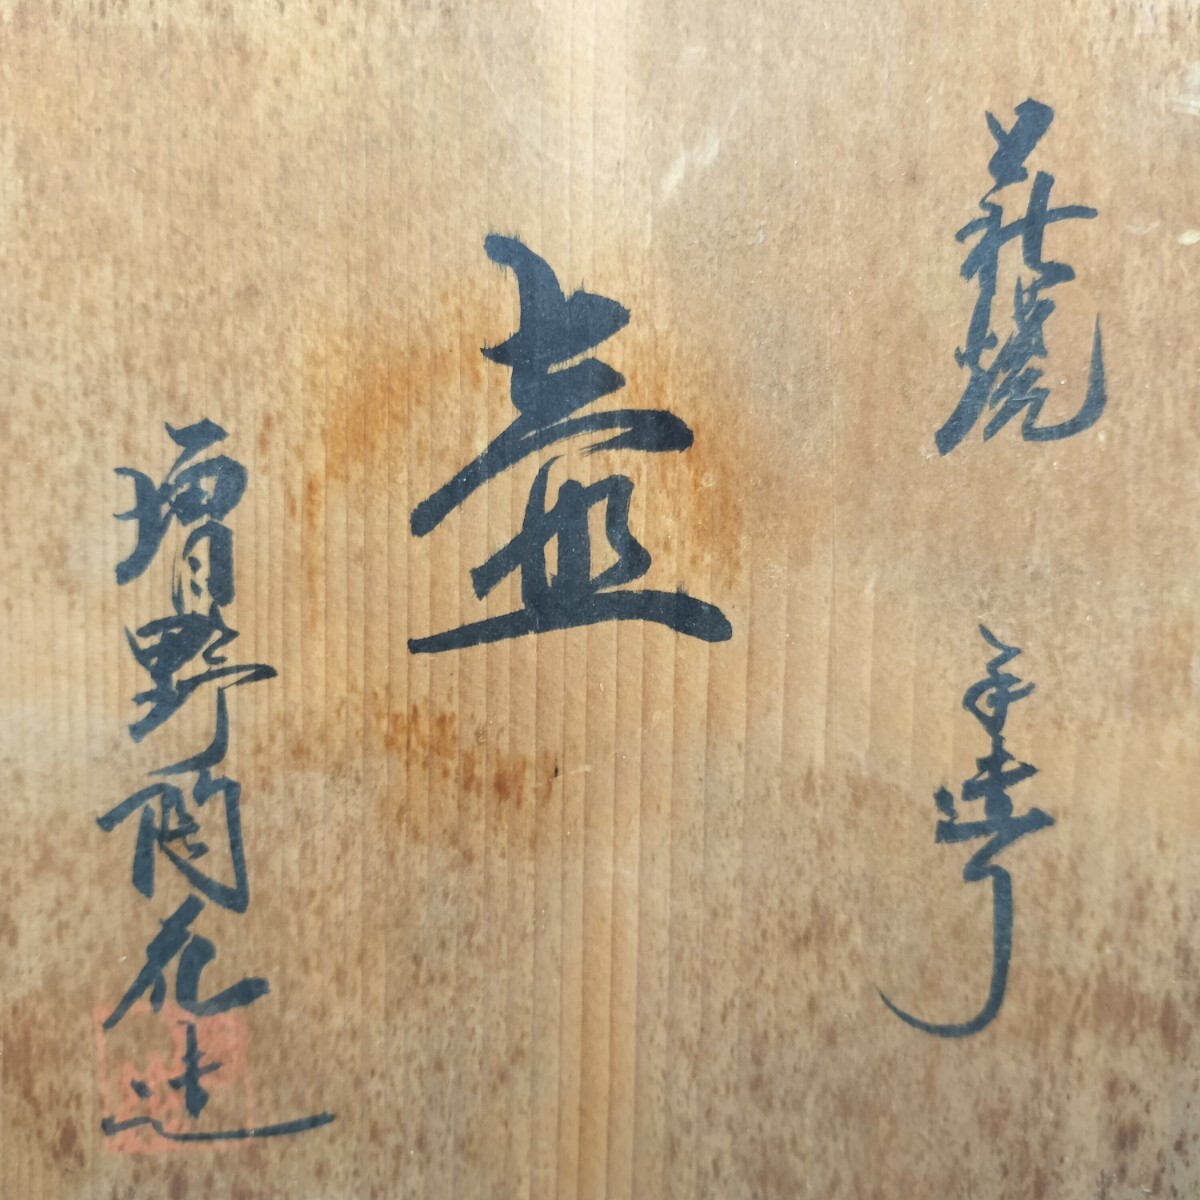 萩焼
手造
壺
増野陶花造